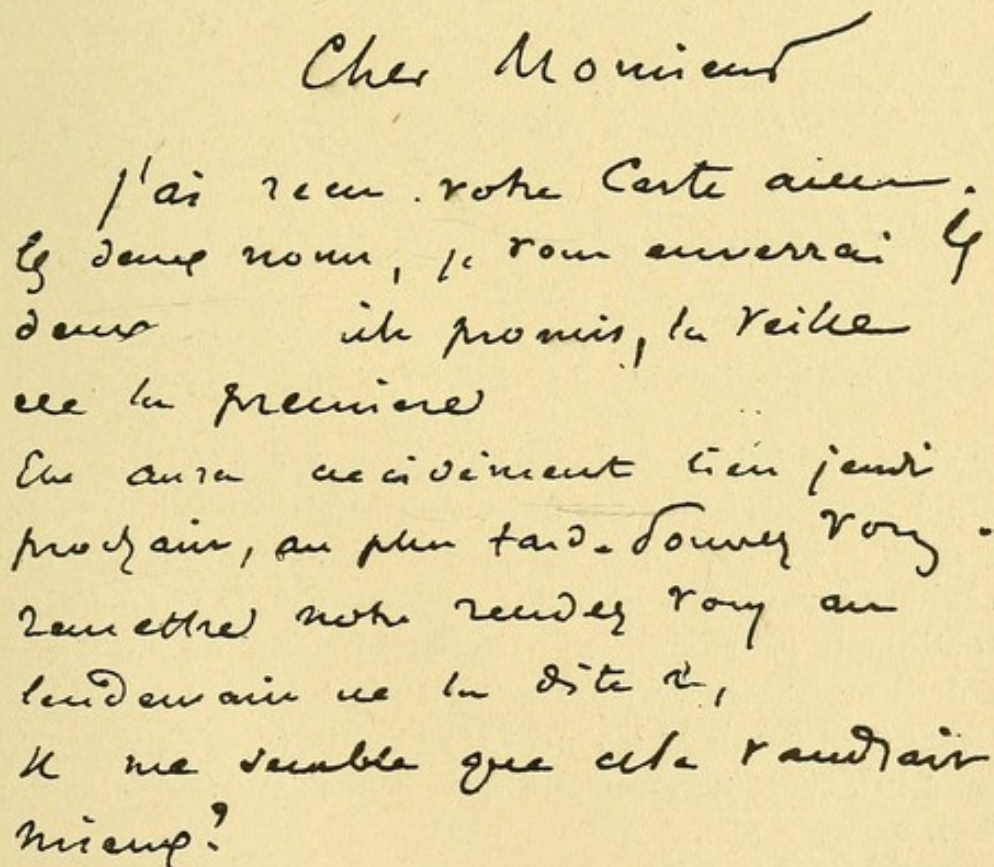 Cher Monsieur
j'ai reçu votre Carte avec
les deux noms, je vous enverrai les
deux promis, la veille
de la première
Elle aura décidément lieu jeudi
prochain, au plus tard. Pouvez vous
remettre notre rendez vous au
lendemain de la dite
Il me semble que cela vaudrait
mieux?